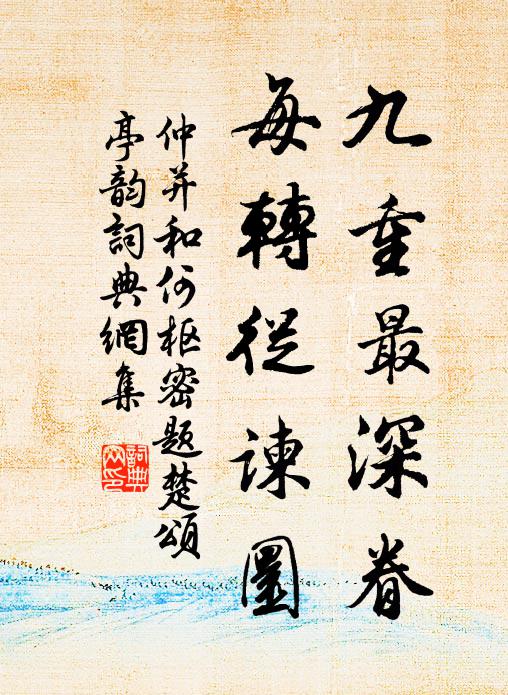 九重最深眷
每轉從諫圜
仲并和何枢密題楚頌
亭韵詞典網集
詞典
网印